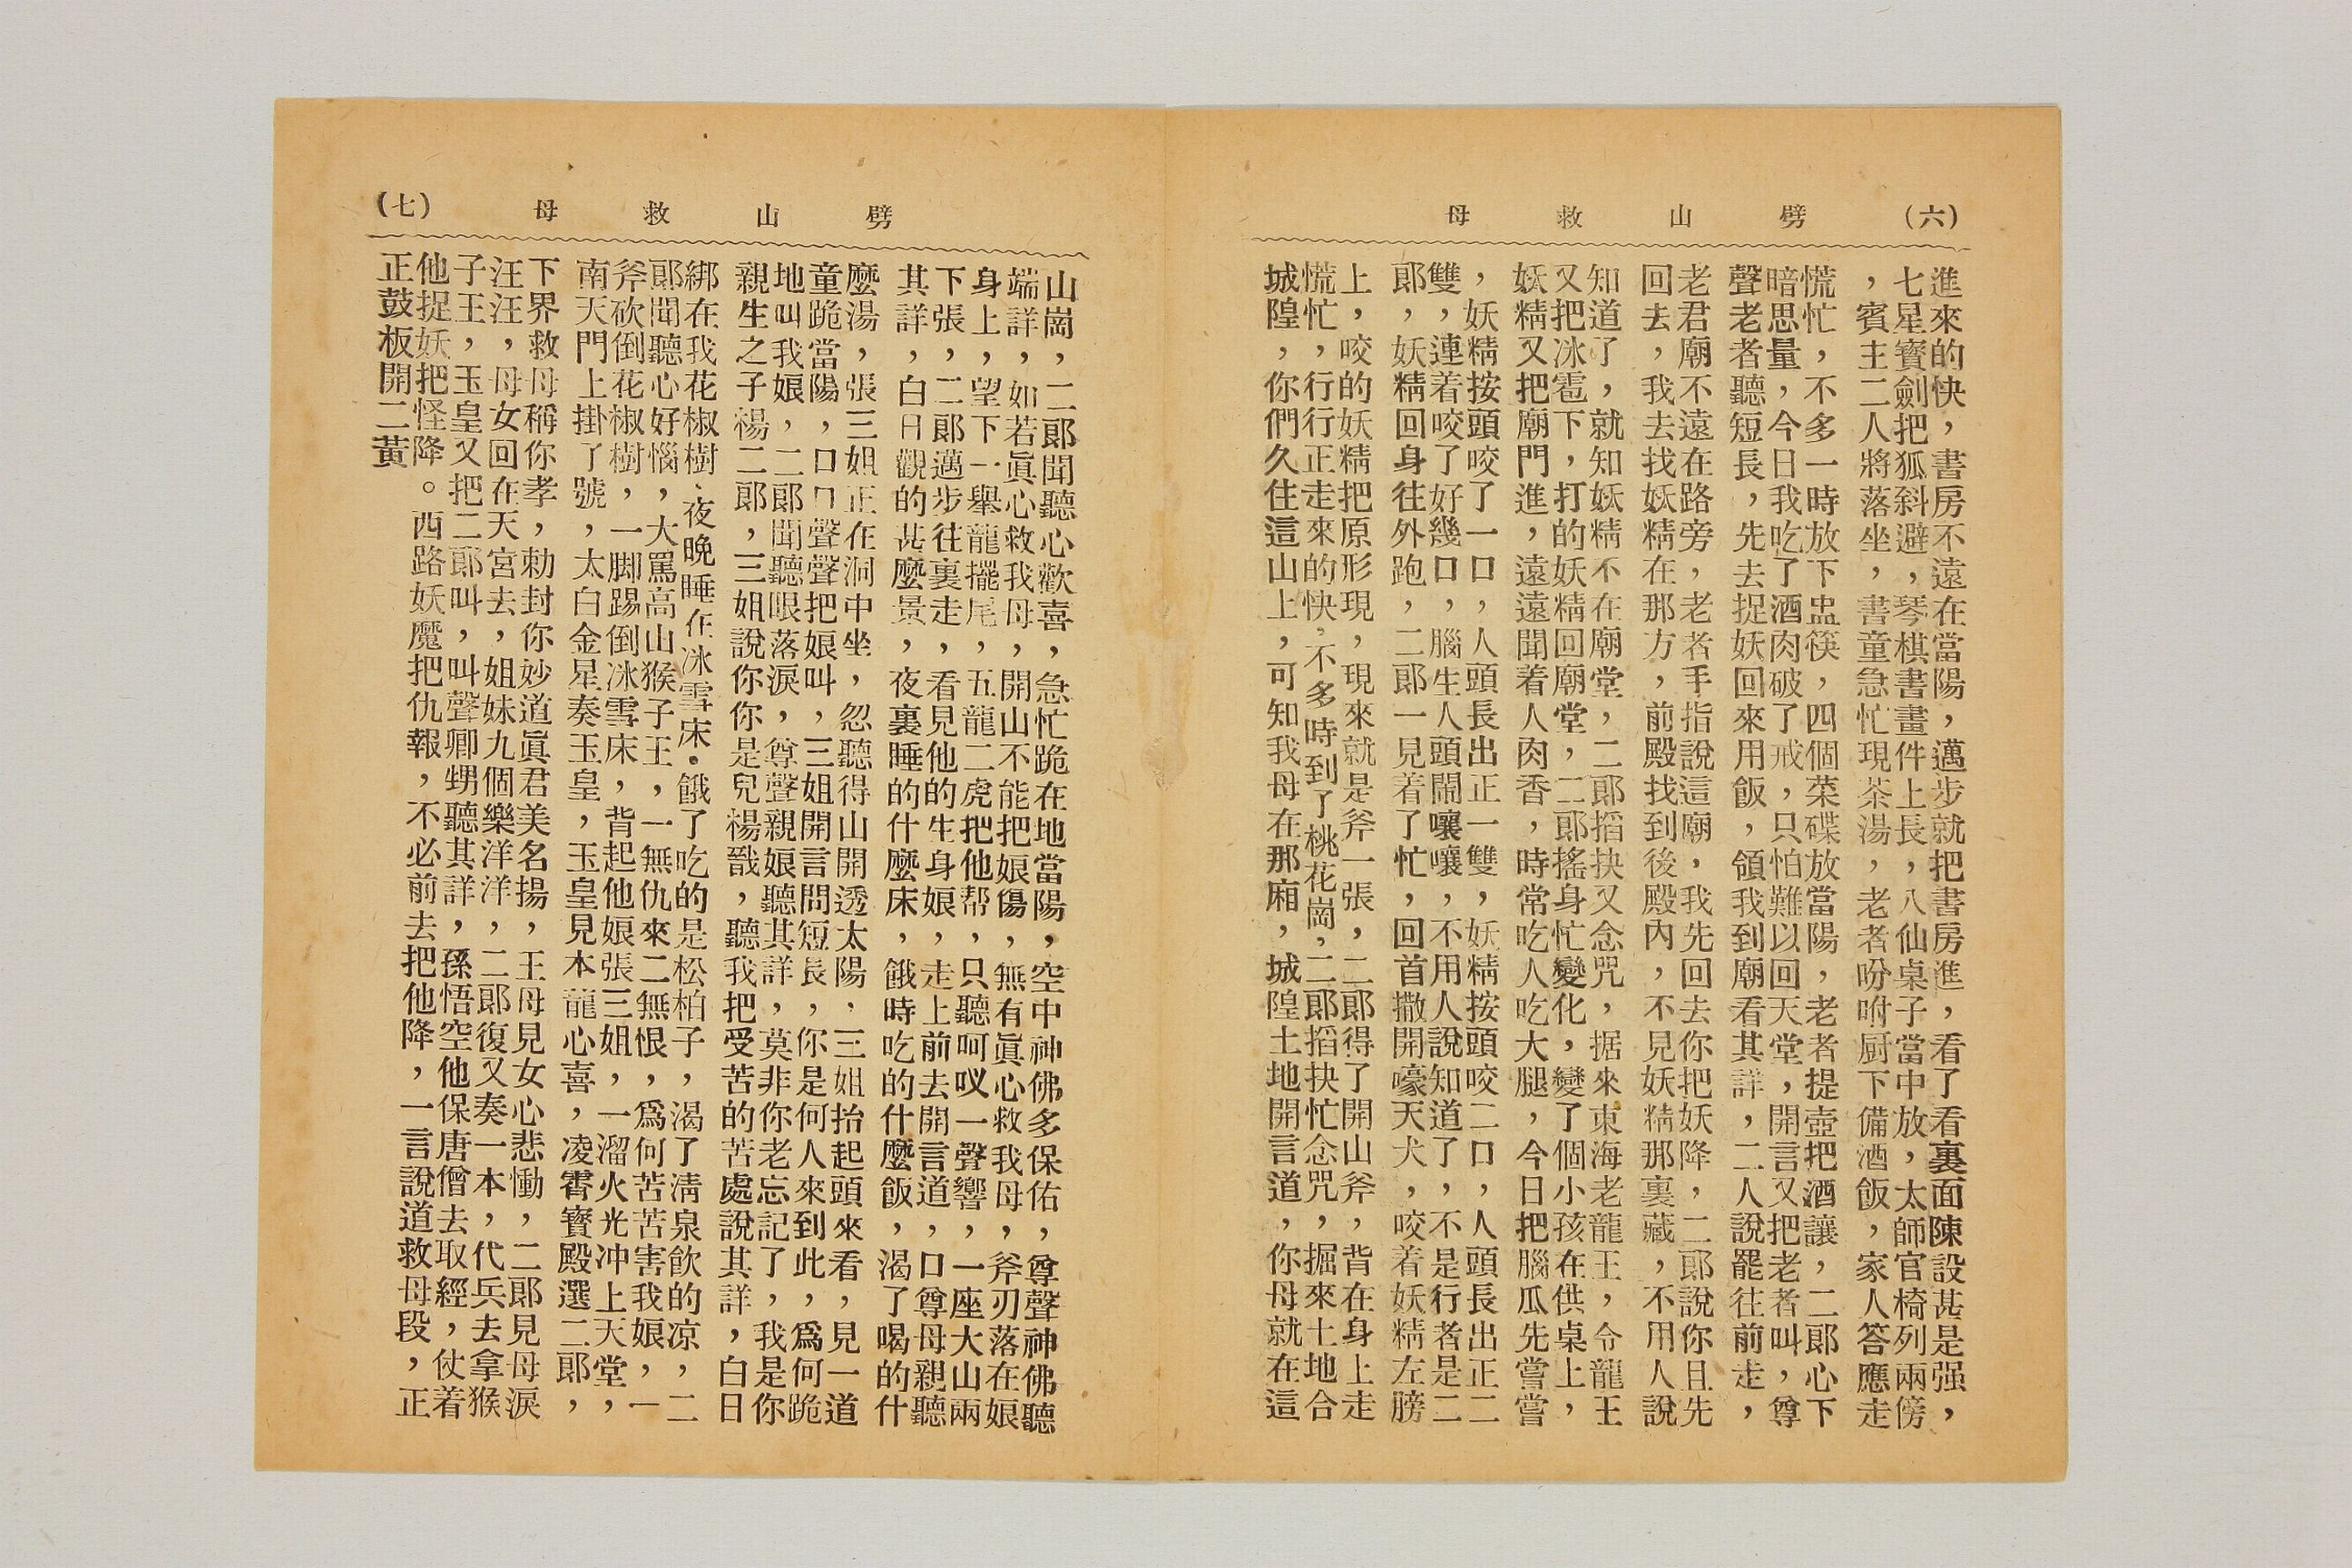 (六)　劈山救母
進來的快，書房不遠在當陽，邁步就把書房進，看了看裏面陳設甚是强，
七星寶劍把狐斜避，琴棋書畫件上長，八仙桌子當中放，太師官椅列兩傍
，賓主二人將落坐，書童急忙現茶湯，老者吩咐厨下備酒飯，家人答應走
慌忙，不多一時放下盅筷，四個菜碟放當陽，老者提壺把酒讓，二郎心下
暗思量，今日我吃了酒肉破了戒，只怕難以回天堂，開言又把老者叫，尊
聲老者聽短長，先去捉妖回來用飯，領我到廟看其詳，二人說罷往前走，
老君廟不遠在路旁，老者手指說這廟，我先回去你把妖降，二郎說你且先
回去，我去找妖精在那方，前殿找到後殿內，不見妖精那裏藏，不用人說
知道了，就知妖精不在廟堂，二郎搯抉又念咒，据來東海老龍王，令龍王
又把冰雹下，打的妖精回廟堂，二郎搖身忙變化，變了個小孩在供桌上，
妖精又把廟門進，遠遠聞着人肉香，時常吃人吃大腿，今日把腦瓜先嘗嘗
，妖精按頭咬了一口，人頭長出正一雙，妖精按頭咬二口，人頭長出正二
雙，連着咬了好幾口，腦生人頭鬧嚷嚷，不用人說知道了，不是行者是二
郎，妖精回身往外跑，二郎一見着了忙，回首撒開嚎天犬，咬着妖精左膀
上，咬的妖精把原形現，現來就是斧一張，二郎得了開山斧，背在身上走
慌忙，行行正走來的快，不多時到了桃花崗，二郎搯抉忙念咒，掘來土地合
城隍，你們久住這山上，可知我母在那廂，城隍土地開言道，你母就在這
(七)　劈山救母
山崗，二郎聞聽心歡喜，急忙跪在地當陽，空中神佛多保佑，尊聲神佛聽
端詳，如若眞心救我母，開山不能把娘傷，無有眞心救我母，斧刃落在娘
身上，望下一舉龍擺尾，五龍二虎把他帮，只聽呵哎一聲響，一座大山兩
下張，二郎邁步往裏走，看見他的生身娘，走上前去開言道，口尊母親聽
其詳，白日觀的甚麼景，夜裏睡的什麼床，餓時吃的什麼飯，渴了喝的什
麼湯，張三姐正在洞中坐，忽聽得山開透太陽，三姐抬起頭來看，見一道
童跪當陽，口口聲聲把娘叫，三姐開言問短長，你是何人來到此，爲何跪
地叫我娘，二郎聞聽眼落淚，尊聲親娘聽其詳，莫非你老忘記了，我是你
親生之子楊二郎，三姐說你你是兒楊戩，聽我把受苦的苦處說其詳，白日
綁在我花椒樹，夜晚睡在冰雪床。餓了吃的是松柏子，渴了淸泉飮的凉，二
郎聞聽心好惱，大罵高山猴子王，一無仇來二無恨，爲何苦苦害我娘，一
斧砍倒花椒樹，一脚踢倒冰雪床，背起他娘張三姐，一溜火光冲上天堂，
南天門上掛了號，太白金星奏玉皇，玉皇見本龍心喜，凌霄寳殿選二郎，
下界救母稱你孝，勅封你妙道眞君美名揚，王母見女心悲慟，二郎見母淚
汪汪，母女回在天宮去，姐妹九個樂洋洋，二郎復又奏一本，代兵去拿猴
子王，玉皇又把二郎叫，叫聲卿甥聽其詳，孫悟空他保唐僧去取經，仗着
他捉妖把怪降。西路妖魔把仇報，不必前去把他降，一言說道救母段，正
正鼓板開二黃